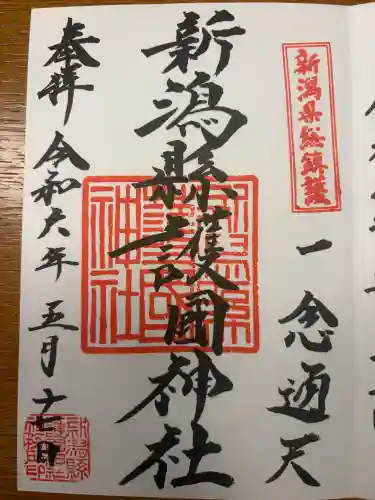 新潟県総鎮護
一念通天
新潟縣護國神社
奉拝 令和六年 五月十七日